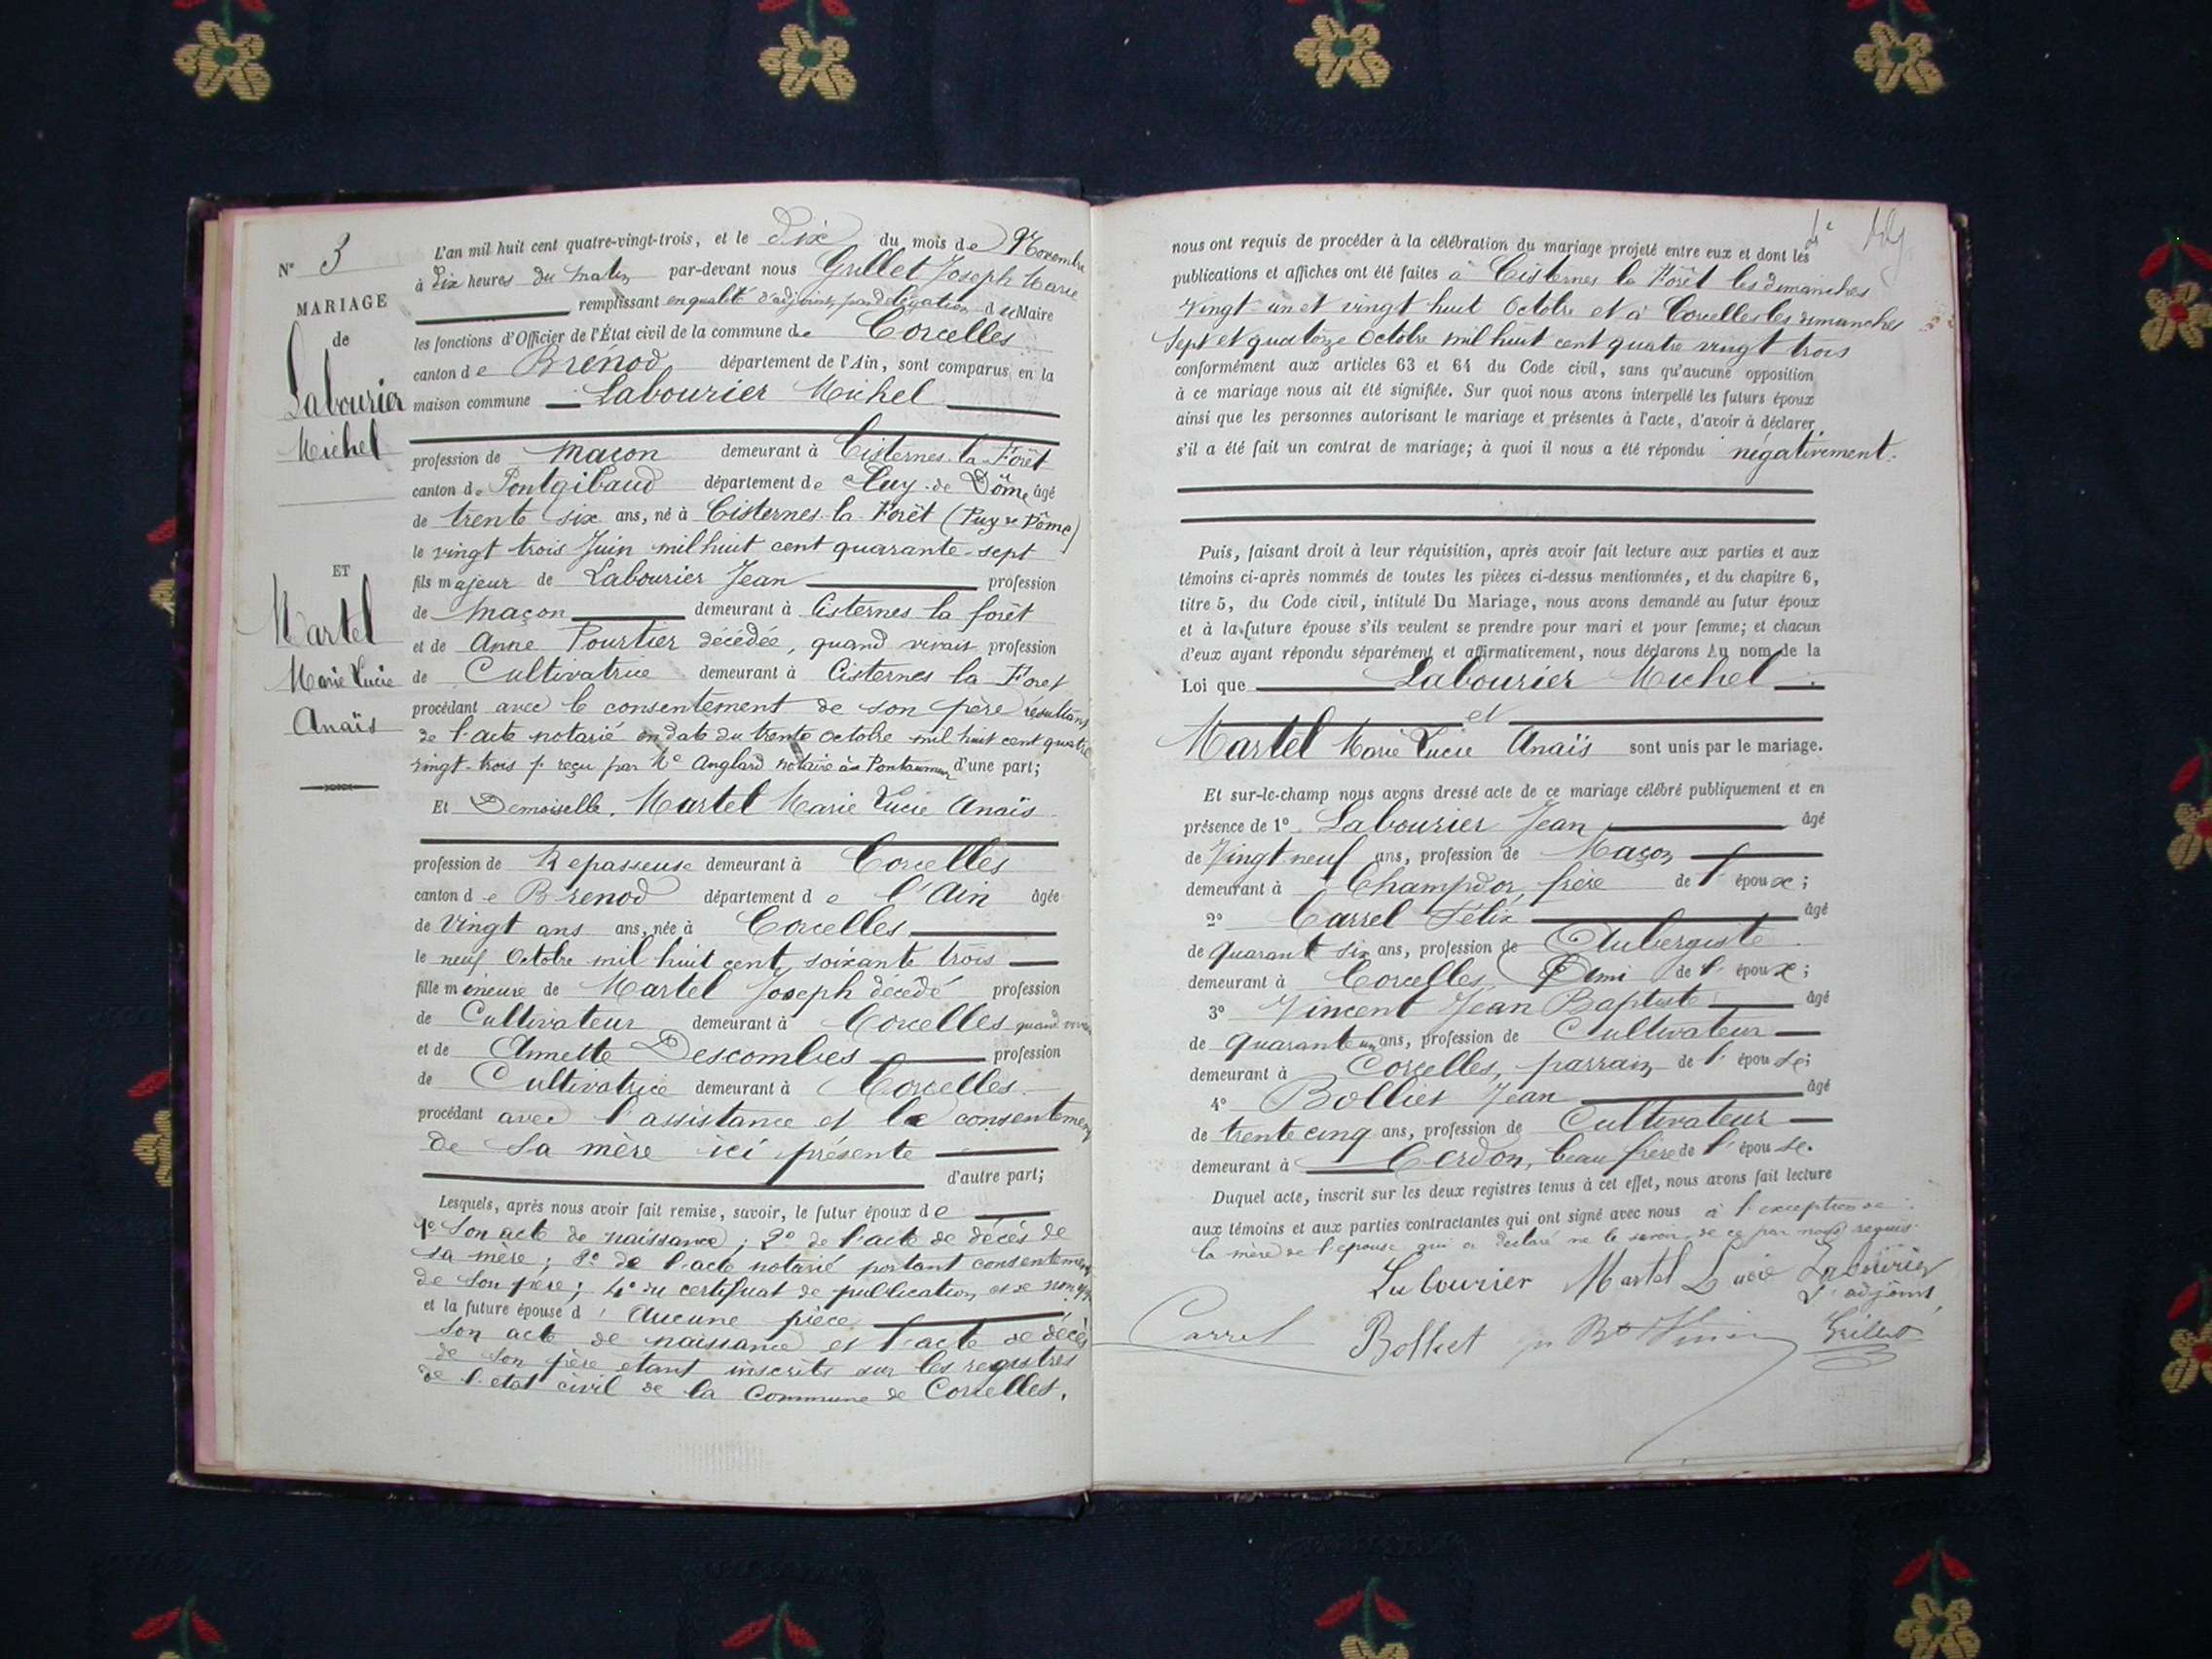 N° 3
MARIAGE
de
Labourier
Michel
ET
Martel
Marie Lucie
Anaïs
L'an mil huit cent quatre-vingt-trois, et le Dix du mois de Novembre
à Dix heures du matin par-devant nous Grillet Joseph Marie
remplissant en qualité d'adjoint par délégation de Maire
les fonctions d'Officier de l'État civil de la commune de Corcelles
canton de Brénod département de l'Ain, sont comparus en la
maison commune Labourier Michel
profession de maçon demeurant à Cisternes-la-Forêt
canton de Pontgibaud département de Puy-de Dôme âgé
de trente six ans, né à Cisternes-la-Forêt (Puy de Dôme)
le vingt trois Juin mil huit cent quarante-sept
fils majeur de Labourier Jean profession
de maçon demeurant à Cisternes la forêt
et de Anne Pourtier décédée, quand vivait profession
de Cultivatrice demeurant à Cisternes la Foret
procédant avec le consentement de son père résultant
de l'acte notarié en date du trente octobre mil huit cent quatre
vingt-trois reçu par Me Anglard notaire à Pontaumur d'une part;
Et Demoiselle. Martel Marie Lucie Anaïs
profession de Repasseuse demeurant à Corcelles
canton de Brenod département de l'Ain âgée
de Vingt ans ans, née à Corcelles
le neuf Octobre mil huit cent soixante trois
fille mineure de Martel Joseph décedé profession
de Cultivateur demeurant à Corcelles quand vivait
et de Annette Descombes profession
de Cultivatrice demeurant à Corcelles
procédant avec l'assistance et le consentement
de sa mère ici présente
d'autre part;
Lesquels, après nous avoir fait remise, savoir, le futur époux de
1° Son acte de naissance; 2° de l'acte de décès de
sa mère; 3° de l'acte notarié portant consentement
de son père; 4° du certificat de publication et de non opp.
et la future épouse d' Aucune pièce
son acte de naissance et l'acte de décès
de son père etant inscrits sur les registres
de l'etat civil de la Commune de Corcelles.
nous ont requis de procéder à la célébration du mariage projeté entre eux et dont les
publications et affiches ont été faites à Cisternes la Forêt les dimanches
vingt-un et vingt huit Octobre et à Corcelles les dimanches
sept et quatorze Octobre mil huit cent quatre vingt trois
conformément aux articles 63 et 64 du Code civil, sans qu'aucune opposition
à ce mariage nous ait été signifiée. Sur quoi nous avons interpellé les futurs époux
ainsi que les personnes autorisant le mariage et présentes à l'acte, d'avoir à déclarer
s'il a été fait un contrat de mariage; à quoi il nous a été répondu négativement.
Puis, faisant droit à leur réquisition, après avoir fait lecture aux parties et aux
témoins ci-après nommés de toutes les pièces ci-dessus mentionnées, et du chapitre 6,
titre 5, du Code civil, intitulé Du Mariage, nous avons demandé au futur époux
et à la future épouse s'ils veulent se prendre pour mari et pour femme; et chacun
d'eux ayant répondu séparément et affirmativement, nous déclarons Au nom de la
Loi que Labourier Michel
et
Martel Marie Lucie Anaïs sont unis par le mariage.
Et sur-le-champ nous avons dressé acte de ce mariage célébré publiquement et en
présence de 1° Labourier Jean âgé
de Vingt neuf ans, profession de Maçon
demeurant à Champdor, frère de l'époux;
2° Carrel Félix âgé
de quarante six ans, profession de Aubergiste
demeurant à Corcelles, Ami de l'époux;
3° Vincent Jean Baptiste âgé
de quarante un ans, profession de Cultivateur
demeurant à Corcelles, parrain de l'épouse;
4° Bolliet Jean âgé
de trente cinq ans, profession de Cultivateur
demeurant à Cerdon, beau frère de l'épouse.
Duquel acte, inscrit sur les deux registres tenus à cet effet, nous avons fait lecture
aux témoins et aux parties contractantes qui ont signé avec nous à l'exception de
la mère de l'épouse qui a declaré ne le savoir de ce par nous requis
Labourier Martel Lucie Labourier
L'adjoint,
Carrel Bolliet Grillet